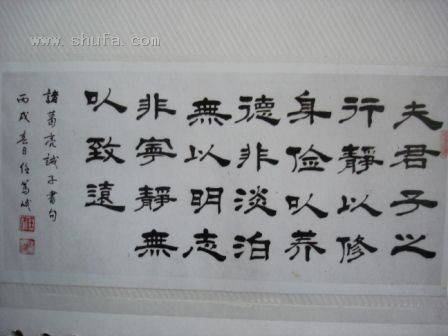 www.shufa.com
夫君子之
行靜以修
身儉以养
德非淡泊
無以明志
非寧靜無
以致遠
諸葛亮誡子書句
丙戌春日任